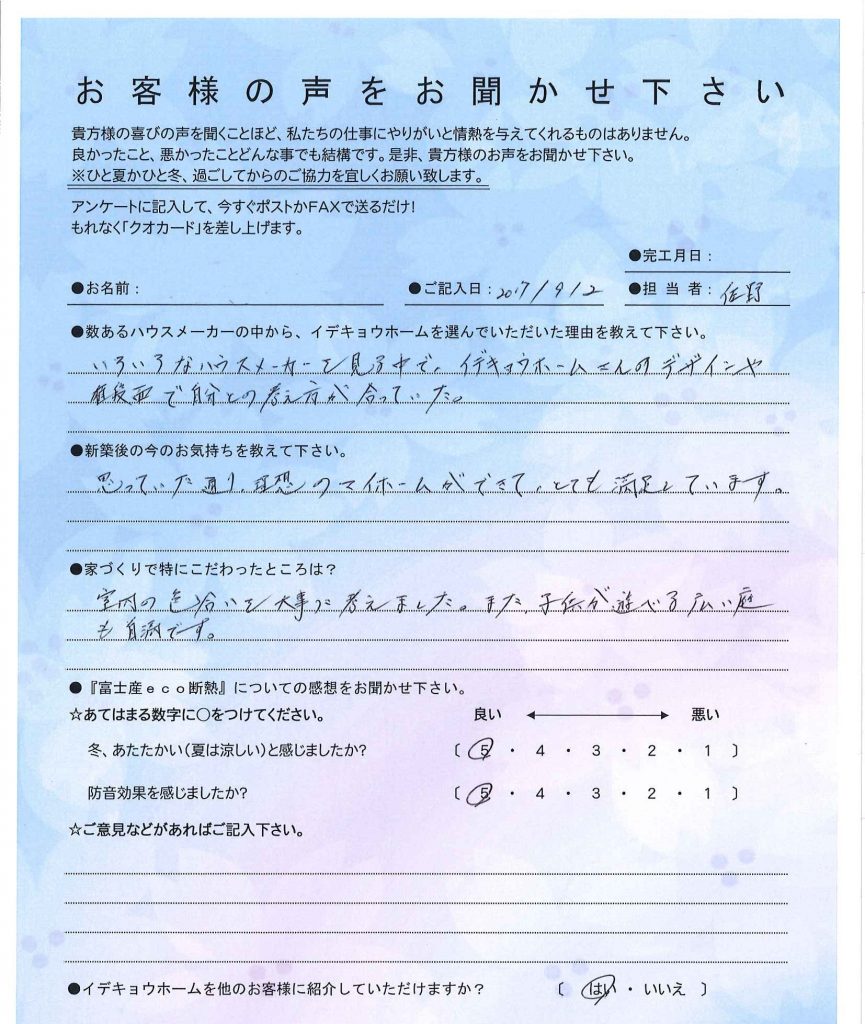 お客様の声をお聞かせ下さい
貴方様の喜びの声を聞くことほど、私たちの仕事にやりがいと情熱を与えてくれるものはありません。
良かったこと、悪かったことどんな事でも結構です。是非、貴方様のお声をお聞かせ下さい。
※ひと夏かひと冬、過ごしてからのご協力を宜しくお願い致します。
アンケートに記入して、今すぐポストかFAXで送るだけ！
もれなく「クオカード」を差し上げます。
●完工月日：
●お名前： ●ご記入日：2017/9/2 ●担当者：佐野
●数あるハウスメーカーの中から、イデキョウホームを選んでいただいた理由を教えて下さい。
いろいろなハウスメーカーを見る中で、イデキョウホームさんのデザインや
値段面で自分との考え方が合っていた。
●新築後の今のお気持ちを教えて下さい。
思っていた通り、理想のマイホームができて、とても満足しています。
●家づくりで特にこだわったところは？
室内の色合いを大事に考えました。また、子供が遊べる広い庭
も自満です。
●『富士産eco断熱』についての感想をお聞かせ下さい。
☆あてはまる数字に○をつけてください。 良い ←→ 悪い
冬、あたたかい（夏は涼しい）と感じましたか？ 〔 5 ・ 4 ・ 3 ・ 2 ・ 1 〕
防音効果を感じましたか？ 〔 5 ・ 4 ・ 3 ・ 2 ・ 1 〕
☆ご意見などがあればご記入下さい。
●イデキョウホームを他のお客様に紹介していただけますか？ 〔 はい ・ いいえ 〕